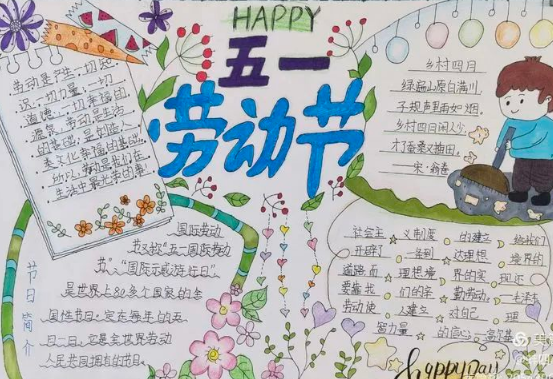 HAPPY
五一
劳动节
劳动是生一切知
识、一切力量、一切
道德、一切幸福的
源泉,劳动是生活
的基础,是创造人
类文化幸福的基础,
生活中最光荣的事
乡村四月
绿遍山原白满川,
子规声里雨如烟。
乡村四月闲人少,
才了蚕桑又插田。
宋·翁卷
节日简介
国际劳动
节又称"五一国际劳动
节"、"国际示威游行日"、
是世界上80多个国家的全
国性节日。定在每年的五
月一日。它是全世界劳动
人民共同拥有的节日。
社会主 义制度 的建立 给我们
开辟了 一条到 达理想 境界的
道路而 理想境 界的实 现还
要靠我 们的辛 勤劳动
劳动使 人建立 对自己 理
智力量 的信心
happy Day